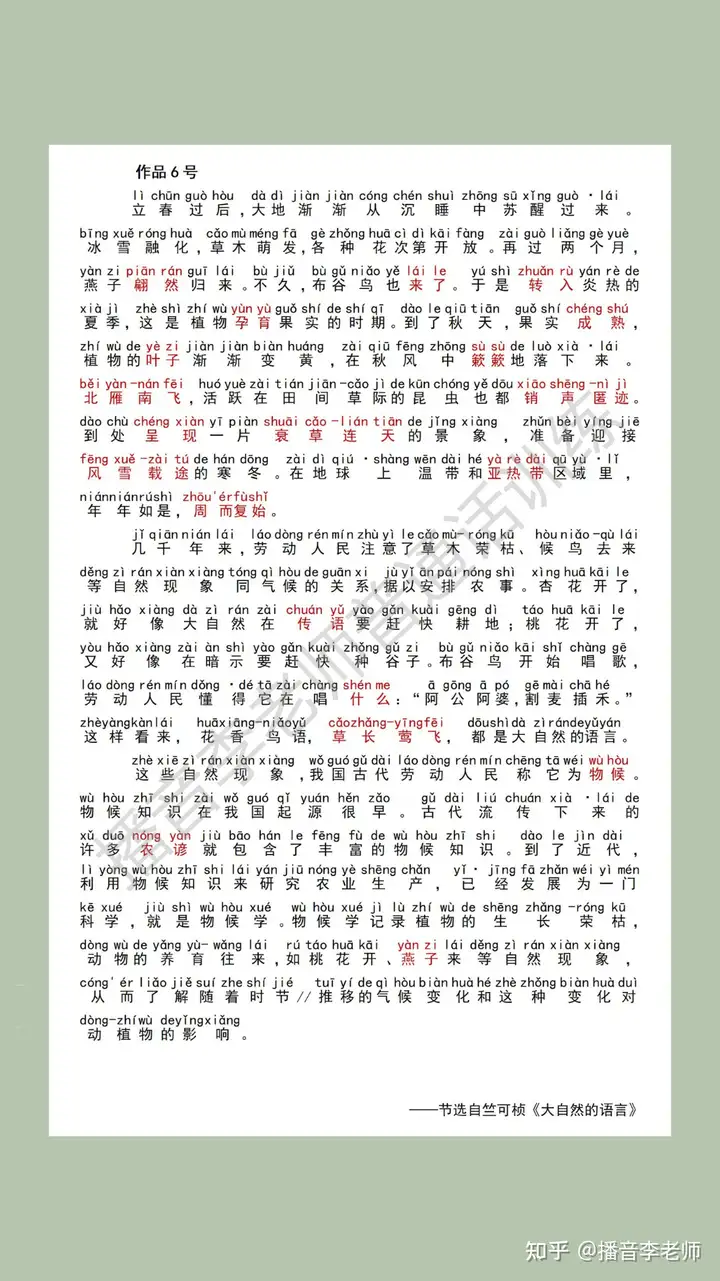 作品6号
lì chūn guò hòu dà dì jiàn jiàn cóng chén shuì zhōng sū xǐng guò·lái
立春过后,大地渐渐从沉睡中苏醒过来。
bīng xuě róng huà cǎo mù méng fā gè zhǒng huā cì dì kāi fàng zài guò liǎng gè yuè
冰雪融化,草木萌发,各种花次第开放。再过两个月,
yàn zi piān rán guī lái bù jiǔ bù gǔ niǎo yě lái le yú shì zhuǎn rù yán rè de
燕子翩然归来。不久,布谷鸟也来了。于是转入炎热的
xià jì zhè shì zhí wù yùn yù guǒ shí de shí qī dào le qiū tiān guǒ shí chéng shú
夏季,这是植物孕育果实的时期。到了秋天,果实成熟,
zhí wù de yè zi jiàn jiàn biàn huáng zài qiū fēng zhōng sù sù de luò xià·lái
植物的叶子渐渐变黄,在秋风中簌簌地落下来。
běi yàn-nán fēi huó yuè zài tián jiān-cǎo jì de kūn chóng yě dōu xiāo shēng-nì jì
北雁南飞,活跃在田间草际的昆虫也都销声匿迹。
dào chù chéng xiàn yī piàn shuāi cǎo-lián tiān de jǐng xiàng zhǔn bèi yíng jiē
到处呈现一片衰草连天的景象,准备迎接
fēng xuě-zài tú de hán dōng zài dì qiú·shàng wēn dài hé yà rè dài qū yù·lǐ
风雪载途的寒冬。在地球上温带和亚热带区域里,
niánniánrúshì zhōu'érfùshǐ
年年如是,周而复始。
jǐ qiān nián lái láo dòng rén mín zhù yì le cǎo mù-róng kū hòu niǎo-qù lái
几千年来,劳动人民注意了草木荣枯、候鸟去来
děng zì rán xiàn xiàng tóng qì hòu de guān xi jù yǐ ān pái nóng shì xìng huā kāi le
等自然现象同气候的关系,据以安排农事。杏花开了,
jiù hǎo xiàng dà zì rán zài chuán yǔ yào gǎn kuài gēng dì táo huā kāi le
就好像大自然在传语要赶快耕地;桃花开了,
yòu hǎo xiàng zài àn shì yào gǎn kuài zhòng gǔ zi bù gǔ niǎo kāi shǐ chàng gē
又好像在暗示要赶快种谷子。布谷鸟开始唱歌,
láo dòng rén mín dǒng·dé tā zài chàng shén me ā gōng ā pó gē mài chā hé
劳动人民懂得它在唱什么:“阿公阿婆,割麦插禾。”
zhèyàngkànlái huāxiāng-niǎoyǔ cǎozhǎng-yīngfēi dōushìdà zìrándeyǔyán
这样看来,花香鸟语,草长莺飞,都是大自然的语言。
zhè xiē zì rán xiàn xiàng wǒ guó gǔ dài láo dòng rén mín chēng tā wéi wù hòu
这些自然现象,我国古代劳动人民称它为物候。
wù hòu zhī shi zài wǒ guó qǐ yuán hěn zǎo gǔ dài liú chuán xià·lái de
物候知识在我国起源很早。古代流传下来的
xǔ duō nóng yàn jiù bāo hán le fēng fù de wù hòu zhī shi dào le jìn dài
许多农谚就包含了丰富的物候知识。到了近代,
lì yòng wù hòu zhī shi lái yán jiū nóng yè shēng chǎn yǐ·jīng fā zhǎn wéi yì mén
利用物候知识来研究农业生产,已经发展为一门
kē xué jiù shì wù hòu xué wù hòu xué jì lù zhí wù de shēng zhǎng-róng kū
科学,就是物候学。物候学记录植物的生长荣枯,
dòng wù de yǎng yù-wǎng lái rú táo huā kāi yàn zi lái děng zì rán xiàn xiàng
动物的养育往来,如桃花开、燕子来等自然现象,
cóng'ér liǎo jiě suí zhe shí jié tuī yí de qì hòu biàn huà hé zhè zhǒng biàn huà duì
从而了解随着时节//推移的气候变化和这种变化对
dòng-zhíwù deyǐngxiǎng
动植物的影响。
——节选自竺可桢《大自然的语言》
播音李老师普通话训练
知乎 @播音李老师